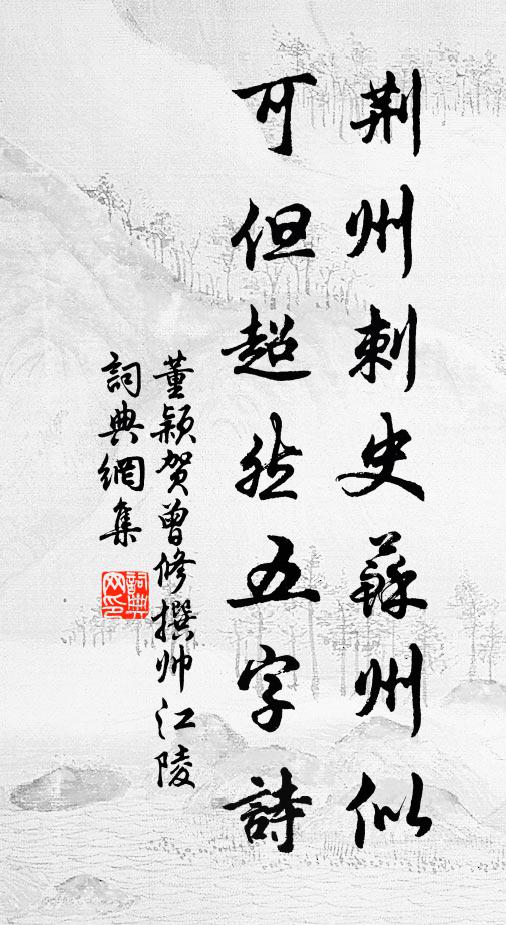 荆州刺史蘇州似
可但超然五字詩
董颖贺曾修撰帅江陵
詞典網集
詞典网印